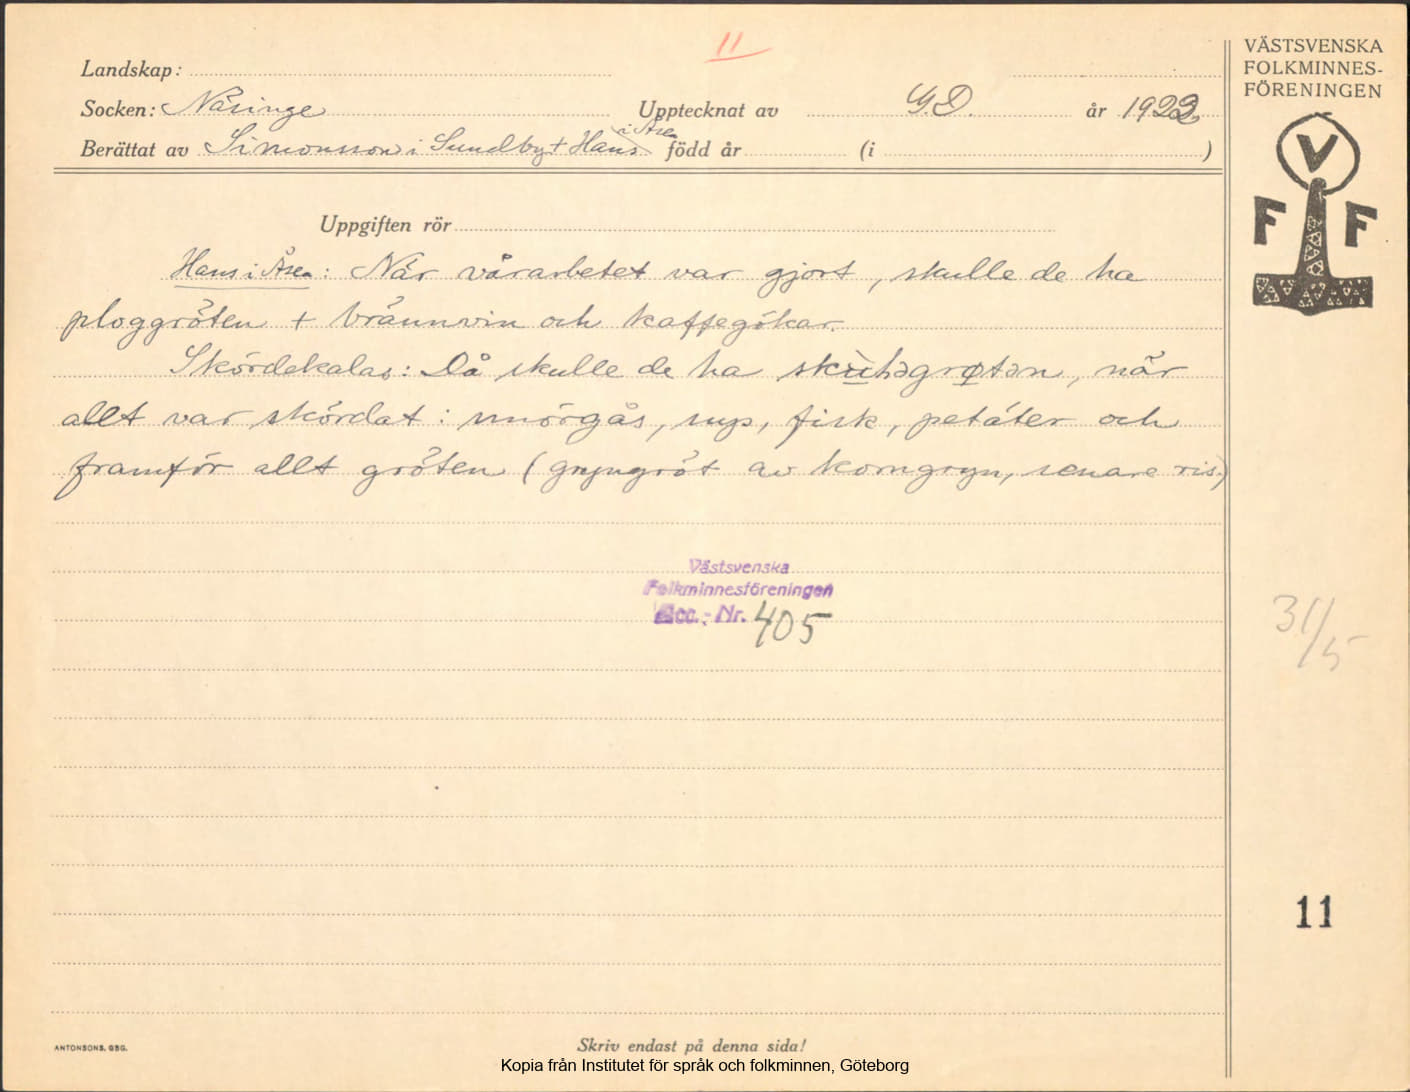 11
VÄSTSVENSKA
FOLKMINNES-
FÖRENINGEN
V
F F
Landskap:
Socken: Näsinge Upptecknat av G.D. år 1923
Berättat av Simonsson i Sundby + Hans i Åsen född år (i )
Uppgiften rör
Hans i Åsen: När vårarbetet var gjort, skulle de ha
ploggröten + brännvin och kaffegökar.
Skördekalas: Då skulle de ha
allt var skördat: smörgås, sup, fisk, petäter och
framför allt gröten (gryngröt av korngryn, senare ris.)
Västsvenska
Folkminnesföreningen
Acc.-Nr. 405
31/5
11
ANTONSONS, GBG.
Skriv endast på denna sida!
Kopia från Institutet för språk och folkminnen, Göteborg